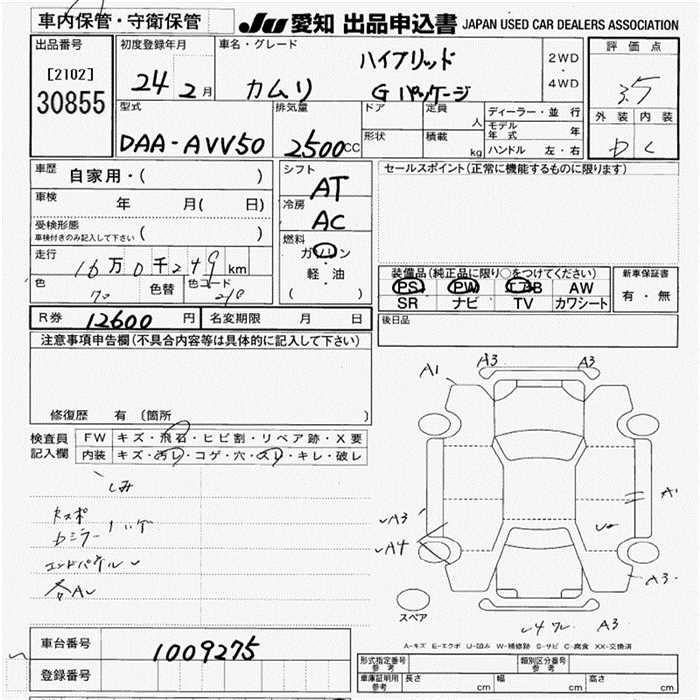 車内保管・守衛保管
JU 愛知 出品申込書 JAPAN USED CAR DEALERS ASSOCIATION
出品番号
[2102]
30855
初度登録年月
24 2月
車名・グレード
ハイブリッド
カムリ Gパッケージ
2WD
・
4WD
評価点
3.5
外装 内装
D C
型式
DAA-AVV50
排気量
2500CC
ドア
形状
定員
人
積載
kg
ディーラー・並行
モデル年式 年
ハンドル 左・右
車歴
自家用・( )
車検 年 月( 日)
受検形態
車検付きのみ記入して下さい ( )
走行
16万0千249km
色
70
色替
色コード
シフト
AT
冷房
AC
燃料
ガソリン
・
軽・油
( )
セールスポイント(正常に機能するものに限ります)
装備品(純正品に限り○をつけてください)
PS PW エアB AW
SR ナビ TV カワシート
新車保証書
有・無
後日品
R券 12600円
名変期限 月 日
注意事項申告欄(不具合内容等は具体的に記入して下さい)
修復歴 有 〔箇所 〕
検査員
記入欄
FW キズ・飛石・ヒビ割・リペア跡・X要
内装 キズ・汚レ・コゲ・穴・スレ・キレ・破レ
シミ
エンドパネル
各A
A1
A3
A3
A1
A3
A4
A3
A3
スペア
A-キズ E-エクボ U-凹み W-補修跡 S-サビ C-腐食 XX-交換済
車台番号 1009275
登録番号
形式指定番号
参考
類別区分番号
参考
車庫証明用
参考
長さ cm
幅 cm
高さ cm